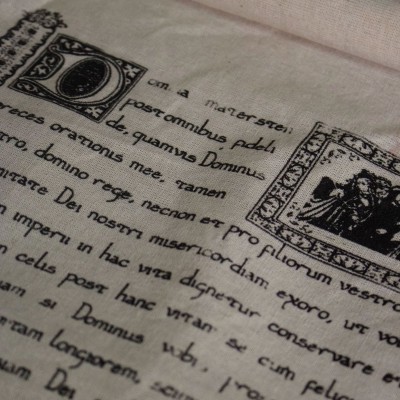 om. a matersten
post omnibus fideli
de, quamvis Dominus
preces orationis mee, tamen
tro, domino rege, necnon et pro filiorum vestro
nitate Dei nostri misericordiam exoro, ut vo
n imperii in hac vita dignetur conservare et
n celis post hanc vitam se cum felici
am si Dominus vobis,
tam longiorem,
uam Dei